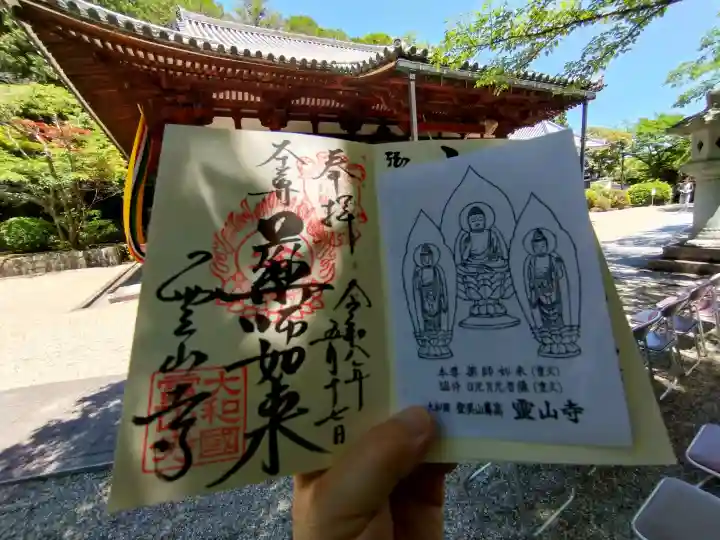 奉拝
令和八年
五月十七日
本尊
薬師如来
霊山寺
大和國
本尊 薬師如来(重文)
脇侍 日光月光菩薩(重文)
大和國 登美山鼻高 霊山寺